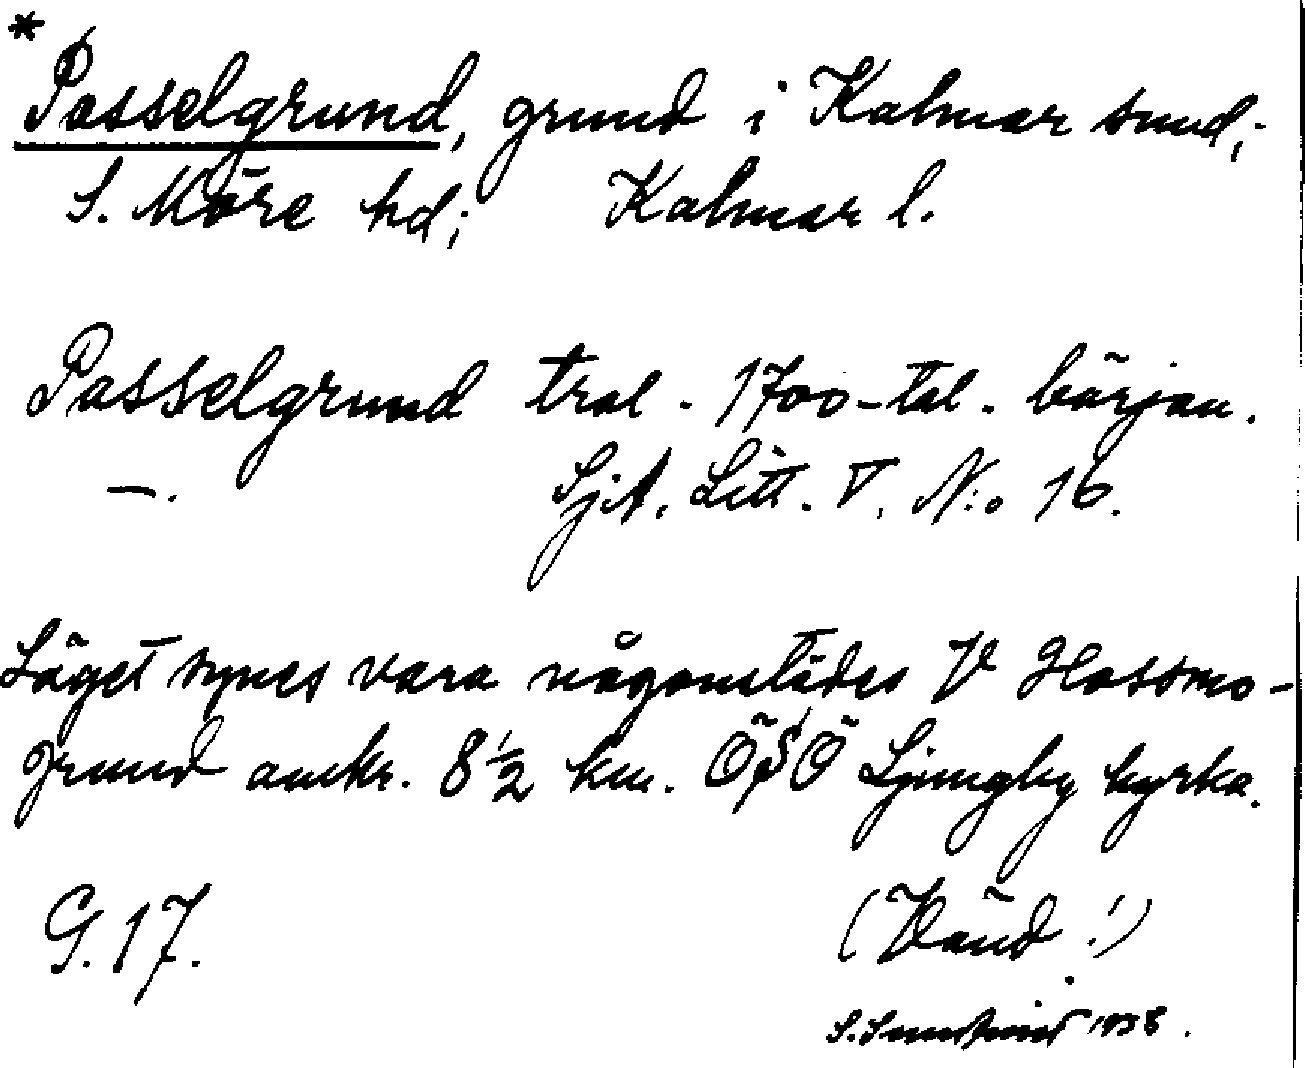 *
Passelgrund, grund i Kalmar sund;
S. Möre hd; Kalmar l.
Passelgrund trol. 1700-tal. början.
—. SjA. Litt. V. N:o 16.
Läget synes vara någonstädes V Hossmo-
grund omkr. 8 1/2 km. ÖSÖ Ljungby kyrka.
G. 17. (Vänd!)
S. 1938.